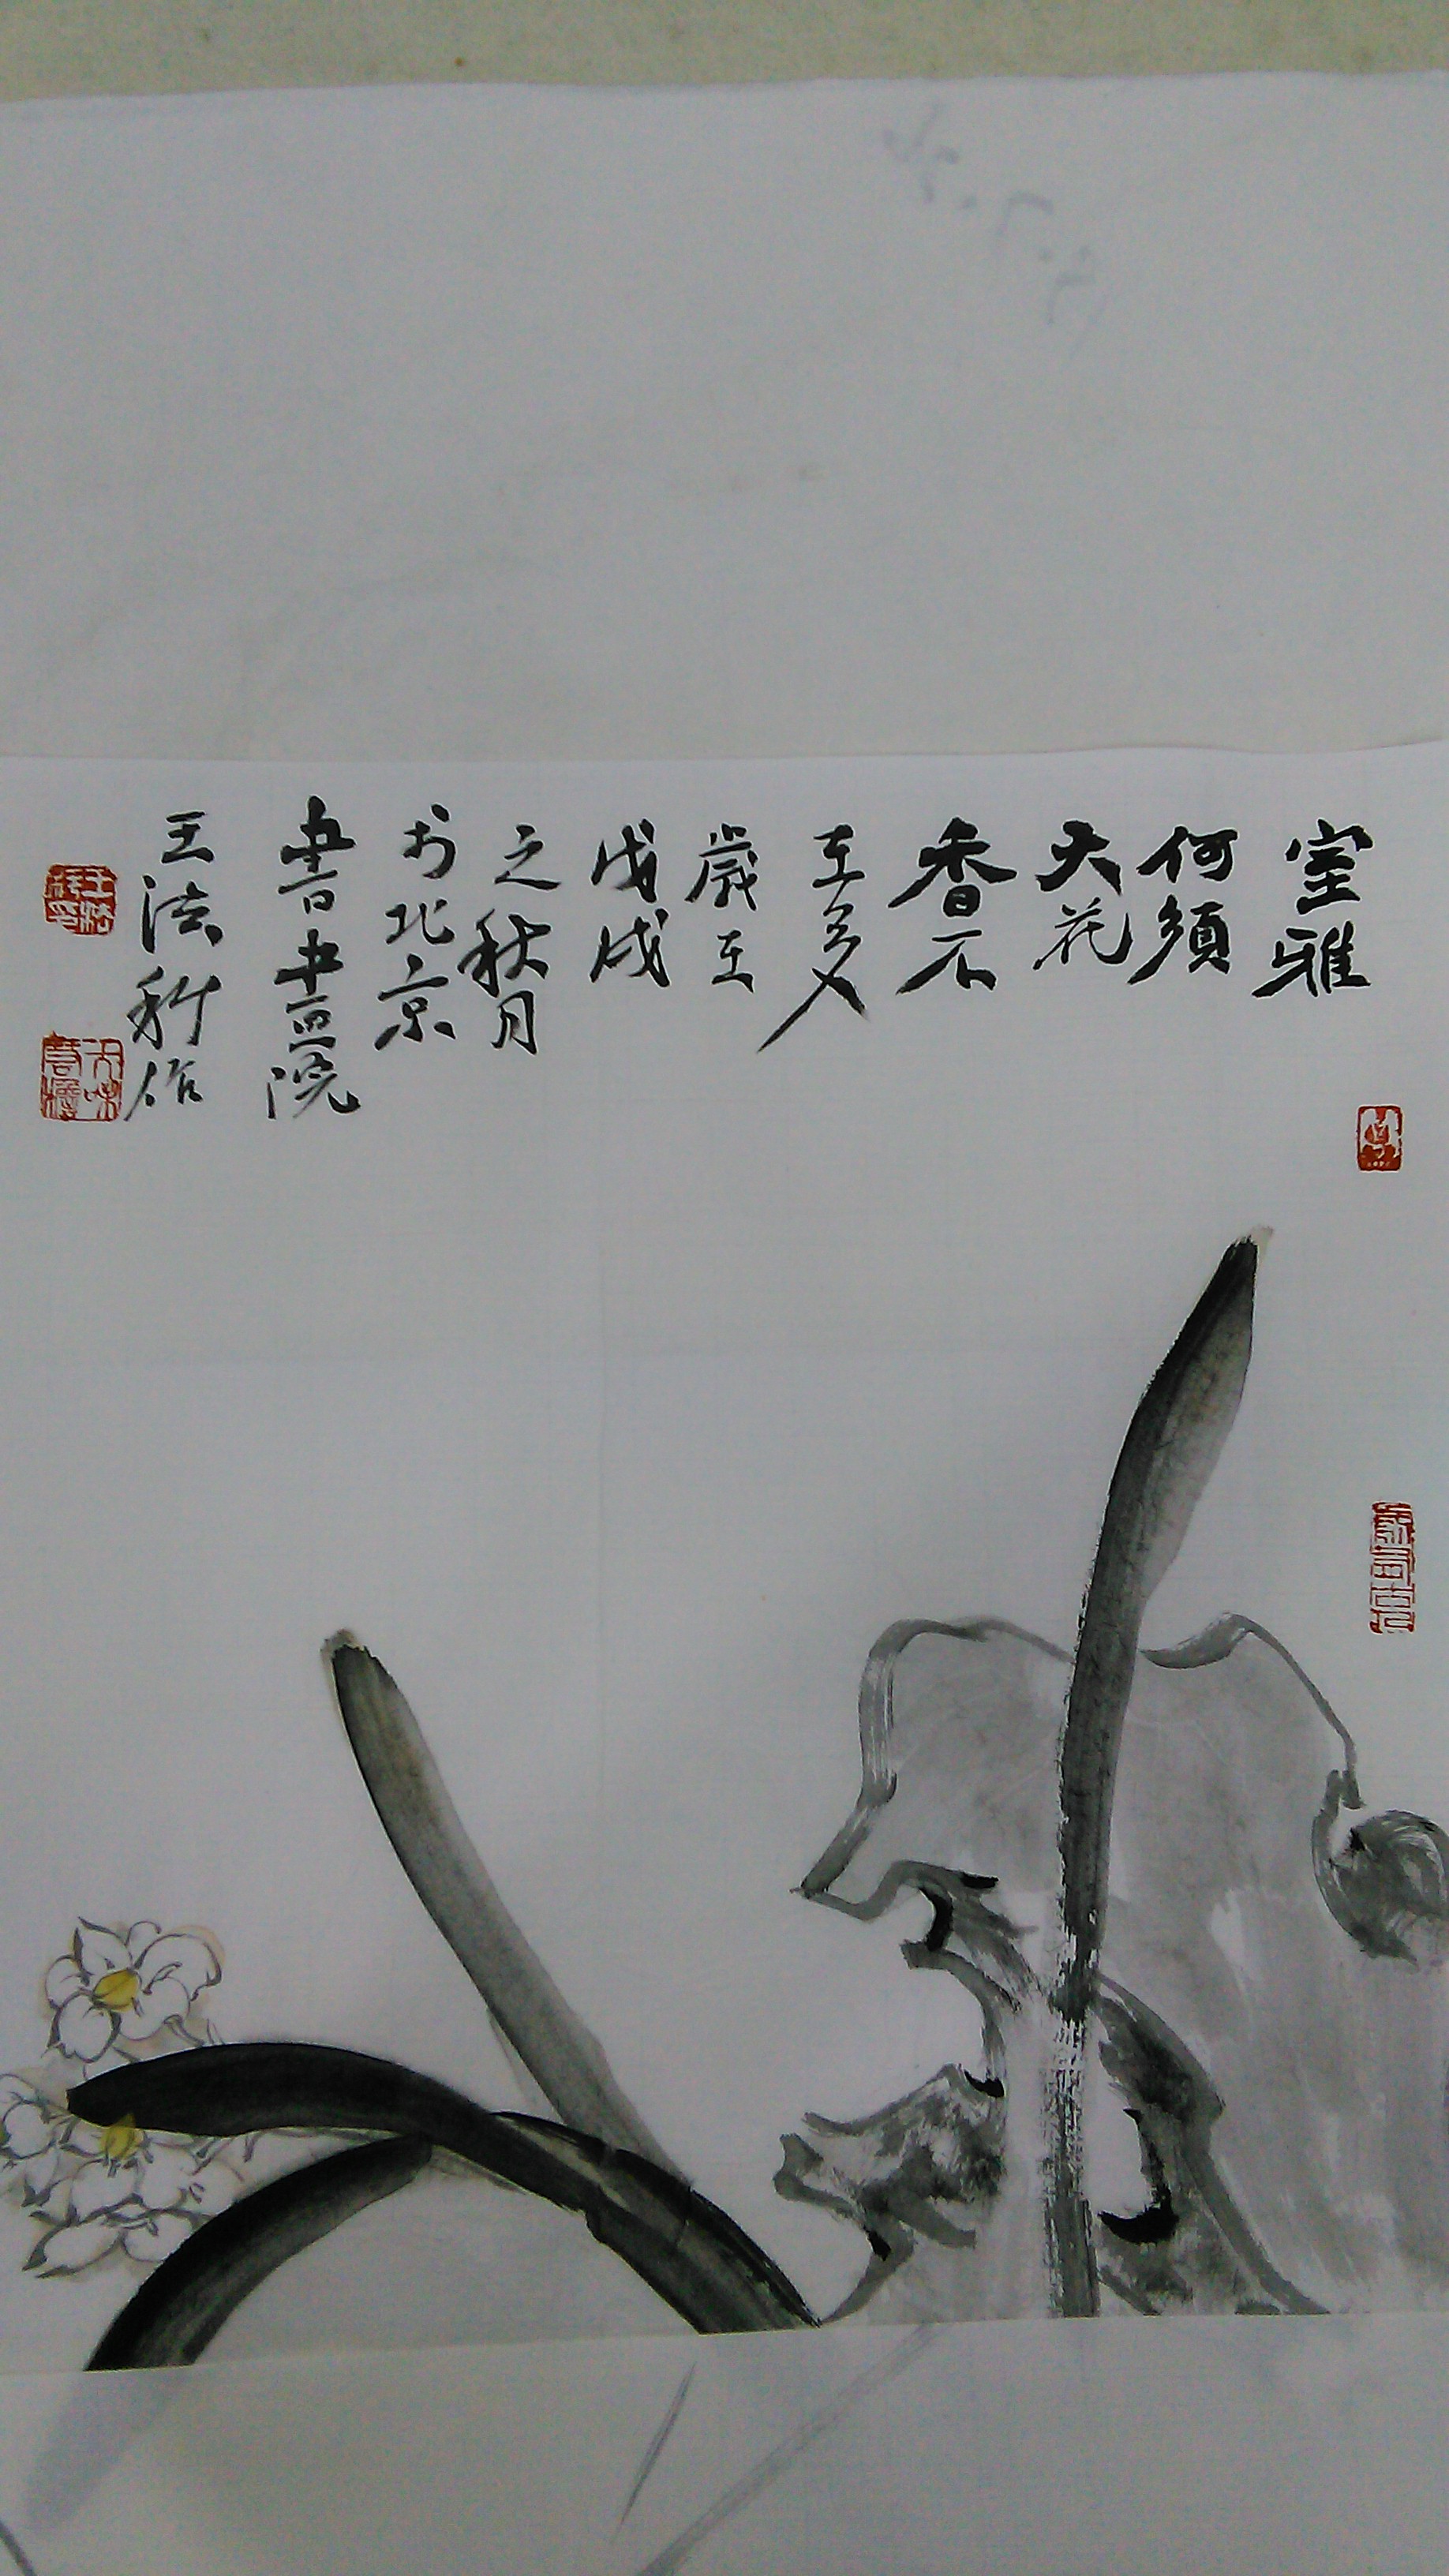 室雅
何須
大花
香不
在多
歲在
戊戌
之秋月
於北京
書畫院
王法科作